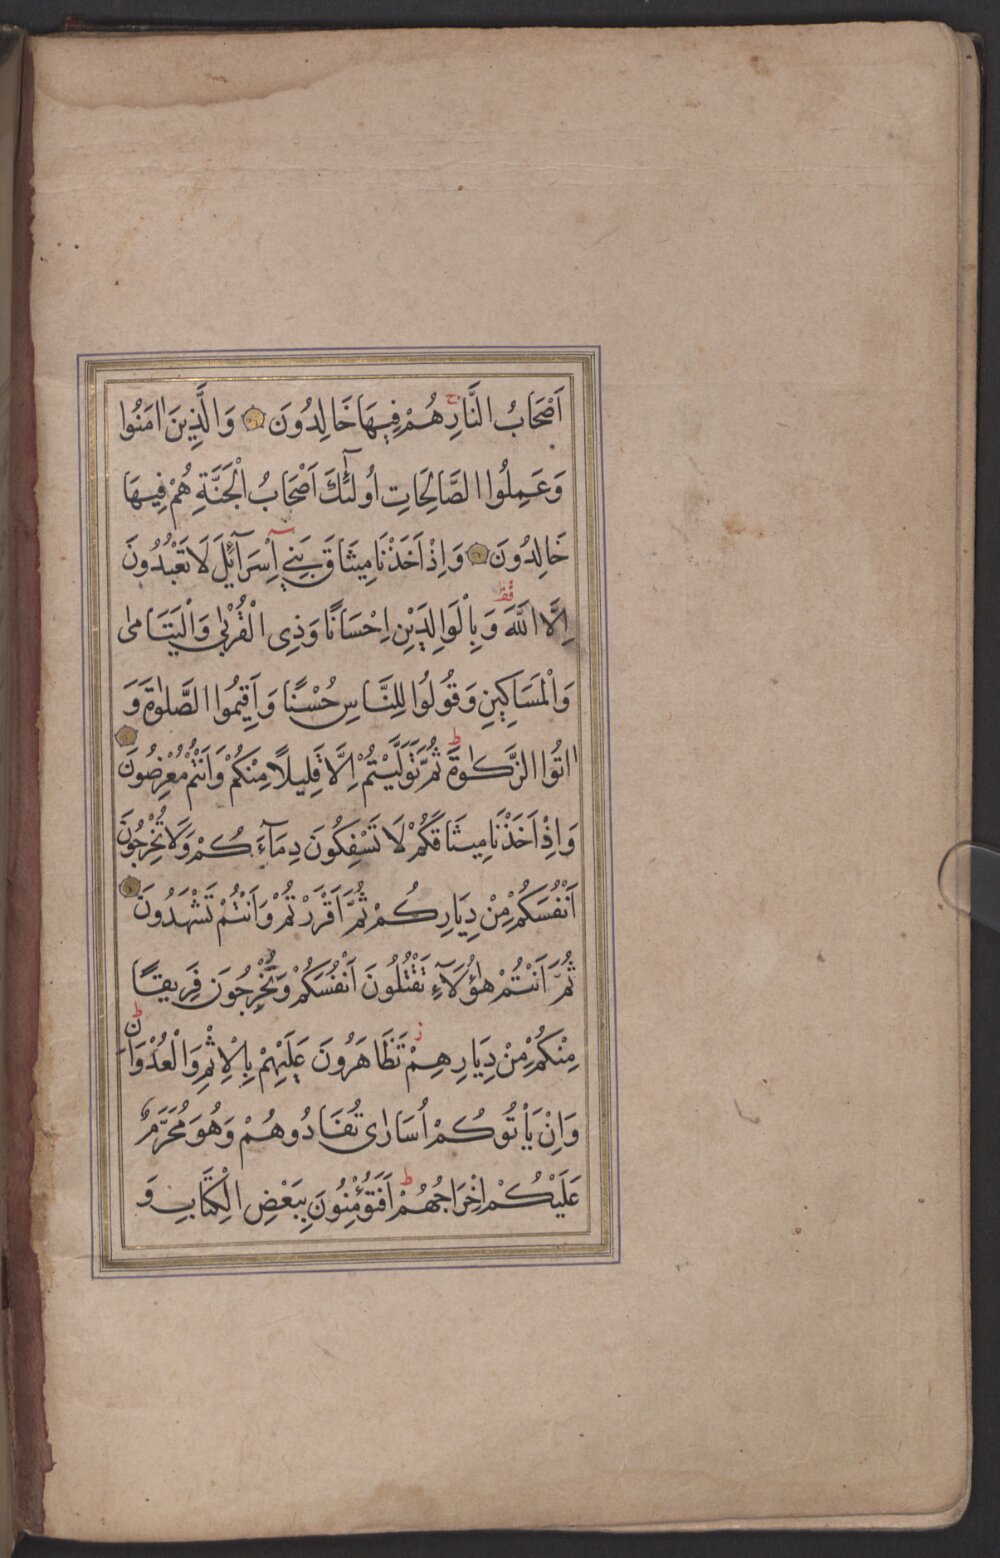 اَصْحَابُ النَّارِ هُمْ فِيهَا خَالِدُونَ وَالَّذِينَ اٰمَنُوا
وَعَمِلُوا الصَّالِحَاتِ اُولٰٓئِكَ اَصْحَابُ الْجَنَّةِ هُمْ فِيهَا
خَالِدُونَ وَاِذْ اَخَذْنَا مِيثَاقَ بَنِٓي اِسْرَٓائِلَ لَا تَعْبُدُونَ
اِلَّا اللّٰهَ وَبِالْوَالِدَيْنِ اِحْسَانًا وَذِي الْقُرْبٰى وَالْيَتَامٰى
وَالْمَسَاكِينِ وَقُولُوا لِلنَّاسِ حُسْنًا وَاَقِيمُوا الصَّلٰوةَ وَ
اٰتُوا الزَّكٰوةَ ط ثُمَّ تَوَلَّيْتُمْ اِلَّا قَلِيلًا مِنْكُمْ وَاَنْتُمْ مُعْرِضُونَ
وَاِذْ اَخَذْنَا مِيثَاقَكُمْ لَا تَسْفِكُونَ دِمَٓاءَكُمْ وَلَا تُخْرِجُونَ
اَنْفُسَكُمْ مِنْ دِيَارِكُمْ ثُمَّ اَقْرَرْتُمْ وَاَنْتُمْ تَشْهَدُونَ
ثُمَّ اَنْتُمْ هٰٓؤُلَٓاءِ تَقْتُلُونَ اَنْفُسَكُمْ وَتُخْرِجُونَ فَرِيقًا
مِنْكُمْ مِنْ دِيَارِهِمْ ز تَظَاهَرُونَ عَلَيْهِمْ بِالْاِثْمِ وَالْعُدْوَانِ ط
وَاِنْ يَأْتُوكُمْ اُسَارٰى تُفَادُوهُمْ وَهُوَ مُحَرَّمٌ
عَلَيْكُمْ اِخْرَاجُهُمْ ط اَفَتُؤْمِنُونَ بِبَعْضِ الْكِتَابِ وَ